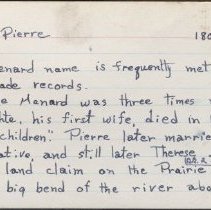 Pierre 180
enard name is frequently met
ade records.
e Manard was three times
te, his first wife, died in
children." Pierre later married
ative, and still later Therese
land claim on the Prairie
big bend of the river abo